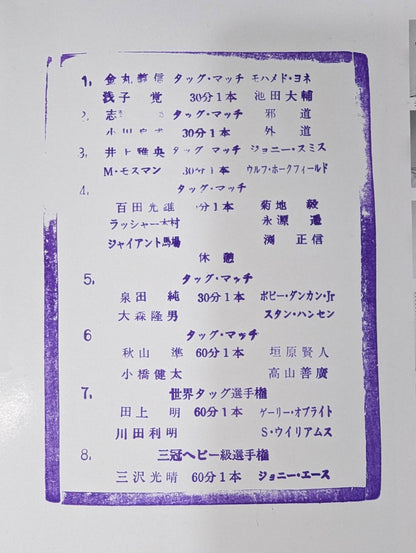 1. 金丸義信 タッグ・マッチ モハメド・ヨネ
浅子 覚 30分1本 池田大輔
2. 志 タッグ・マッチ 邪道
小川良成 30分1本 外道
3. 井上雅央 タッグ マッチ ジョニー・スミス
M・モスマン 30分1本 ウルフ・ホークフィールド
4. タッグ・マッチ
百田光雄 分1本 菊地 毅
ラッシャー木村 永源 遙
ジャイアント馬場 渕 正信
休憩
5. タッグ・マッチ
泉田 純 30分1本 ボビー・ダンカン・Jr
大森隆男 スタン・ハンセン
6 タッグ・マッチ
秋山 準 60分1本 垣原賢人
小橋健太 高山善廣
7. 世界タッグ選手権
田上 明 60分1本 ゲーリー・オブライト
川田利明 S・ウイリアムス
8. 三冠ヘビー級選手権
三沢光晴 60分1本 ジョニー・エース